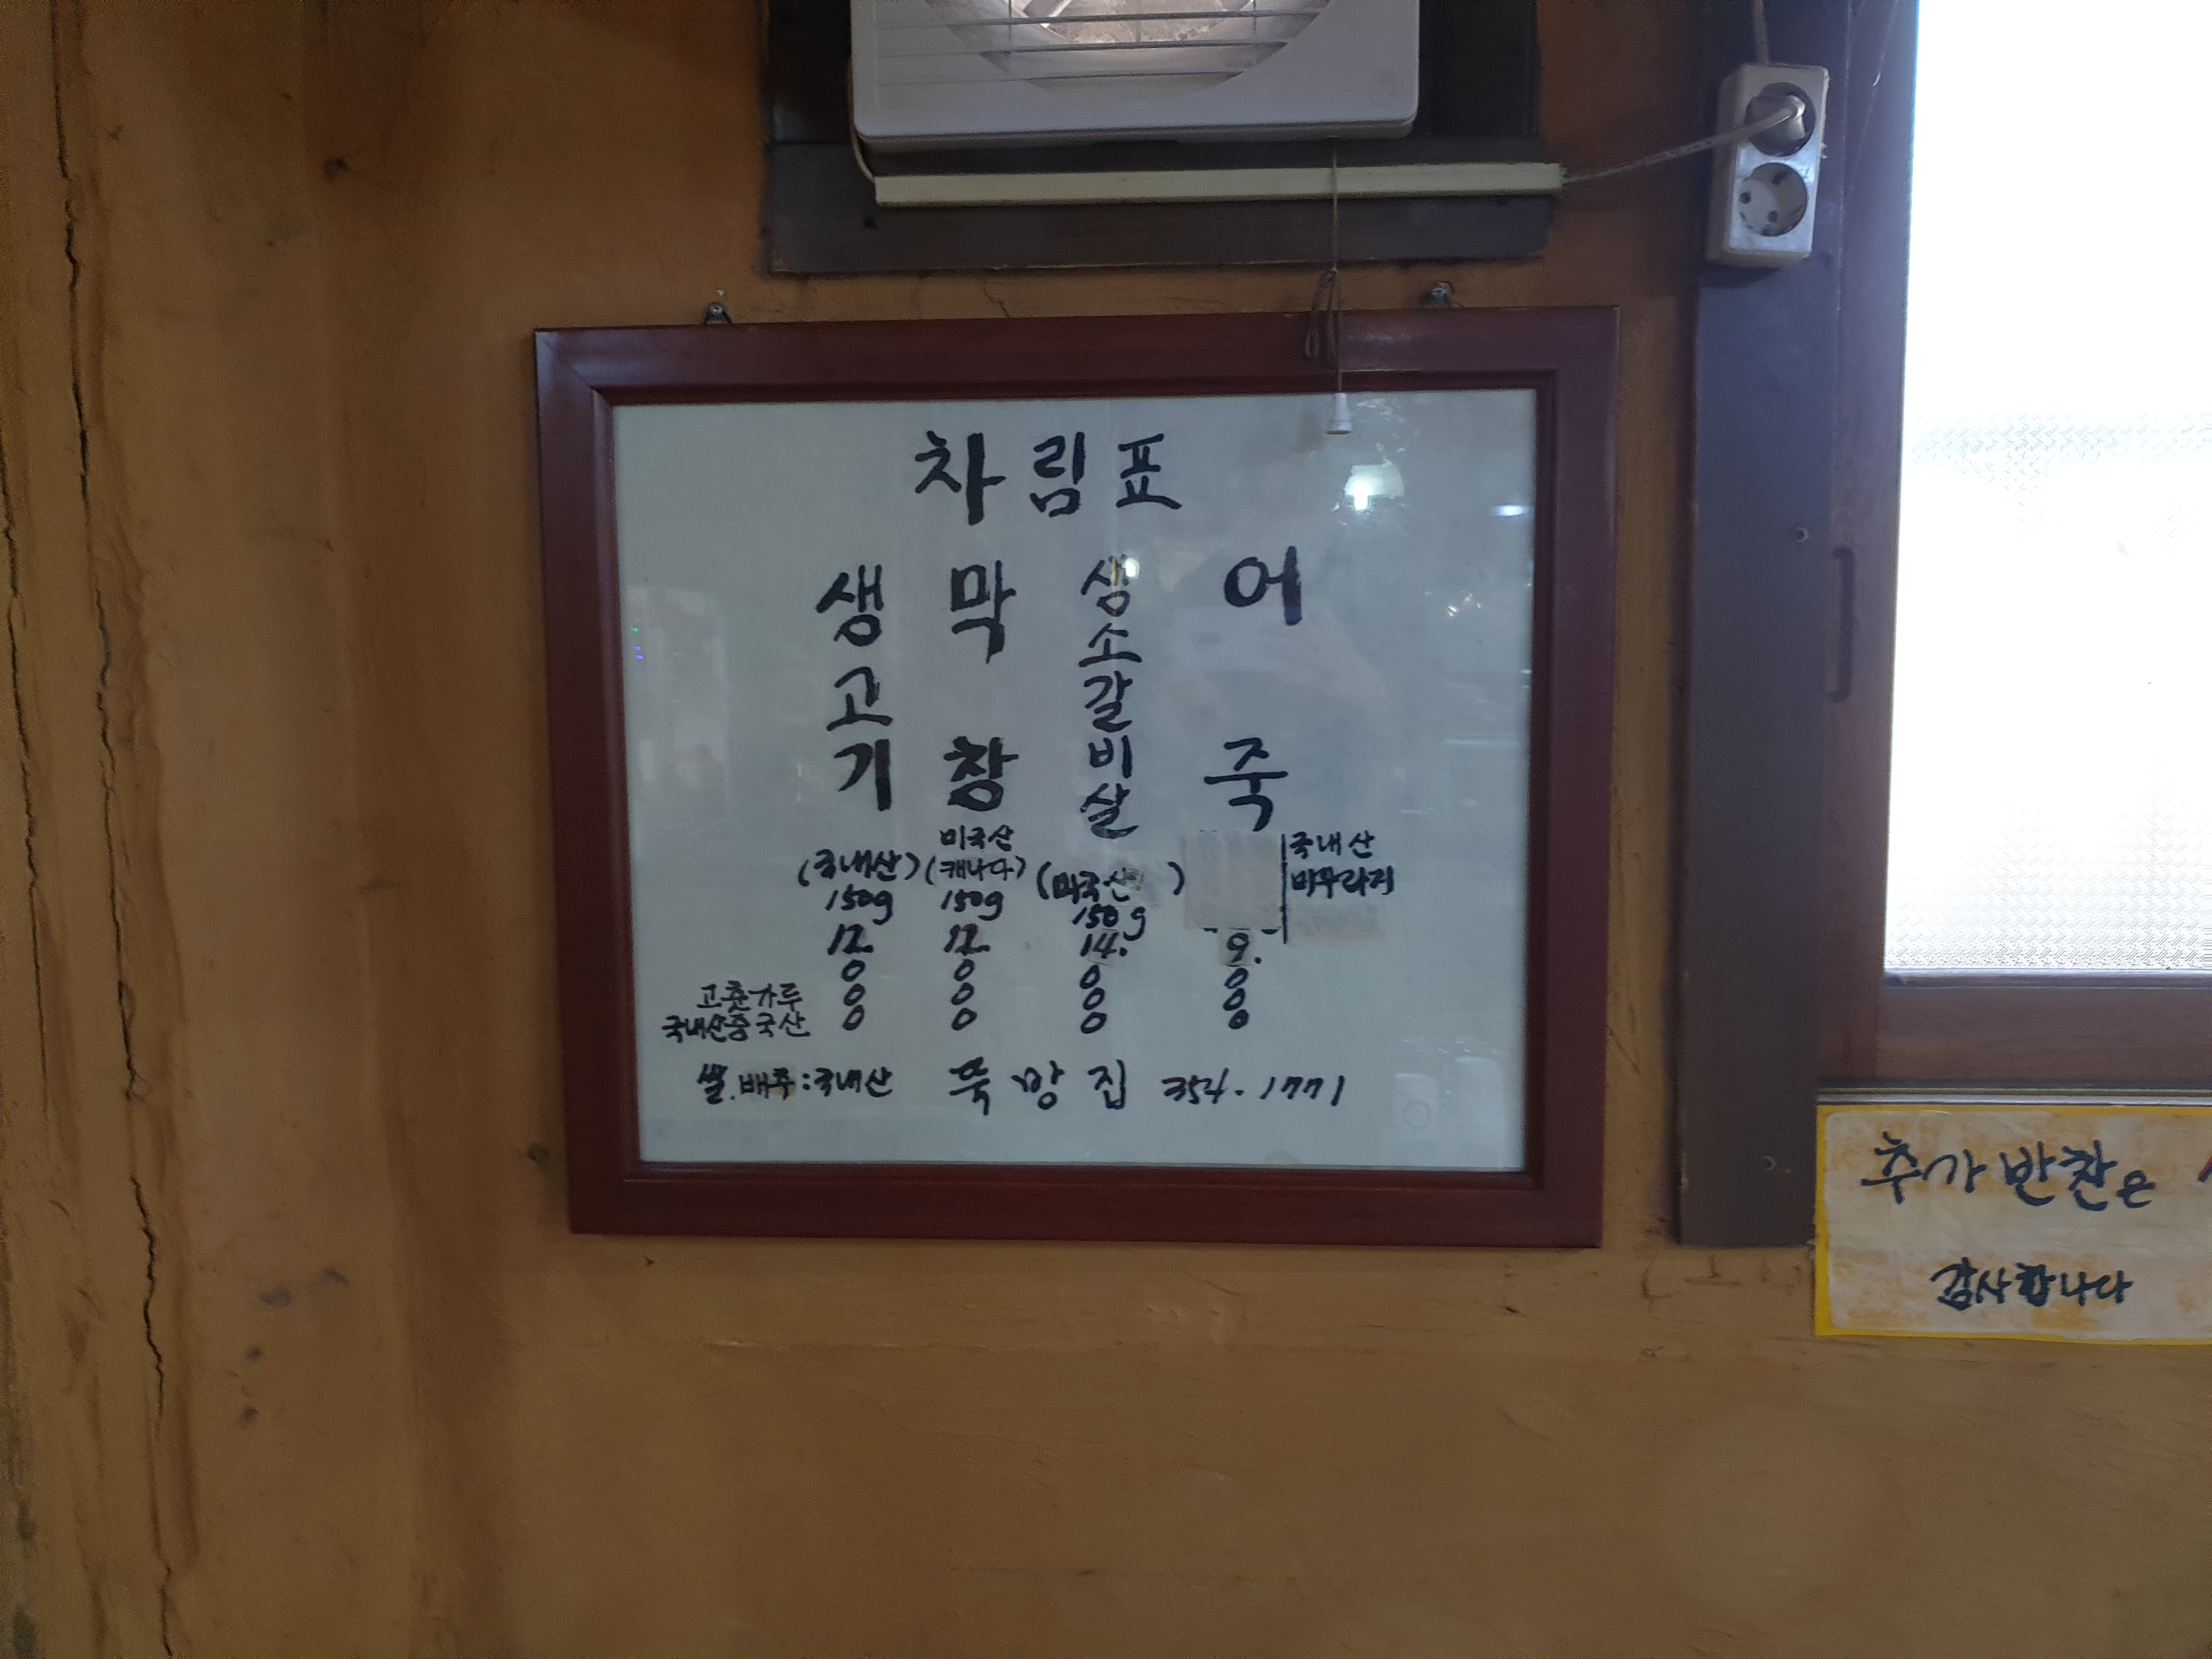 차림표
생고기
(국내산)
150g
12.000
막창
미국산
(캐나다)
150g
12.000
생소갈비살
(미국산)
150g
14.000
어죽
국내산
미꾸라지
9.000
고춧가루
국내산중국산
쌀.배추:국내산
뚝방집 354-1771
추가반찬은
감사합니다